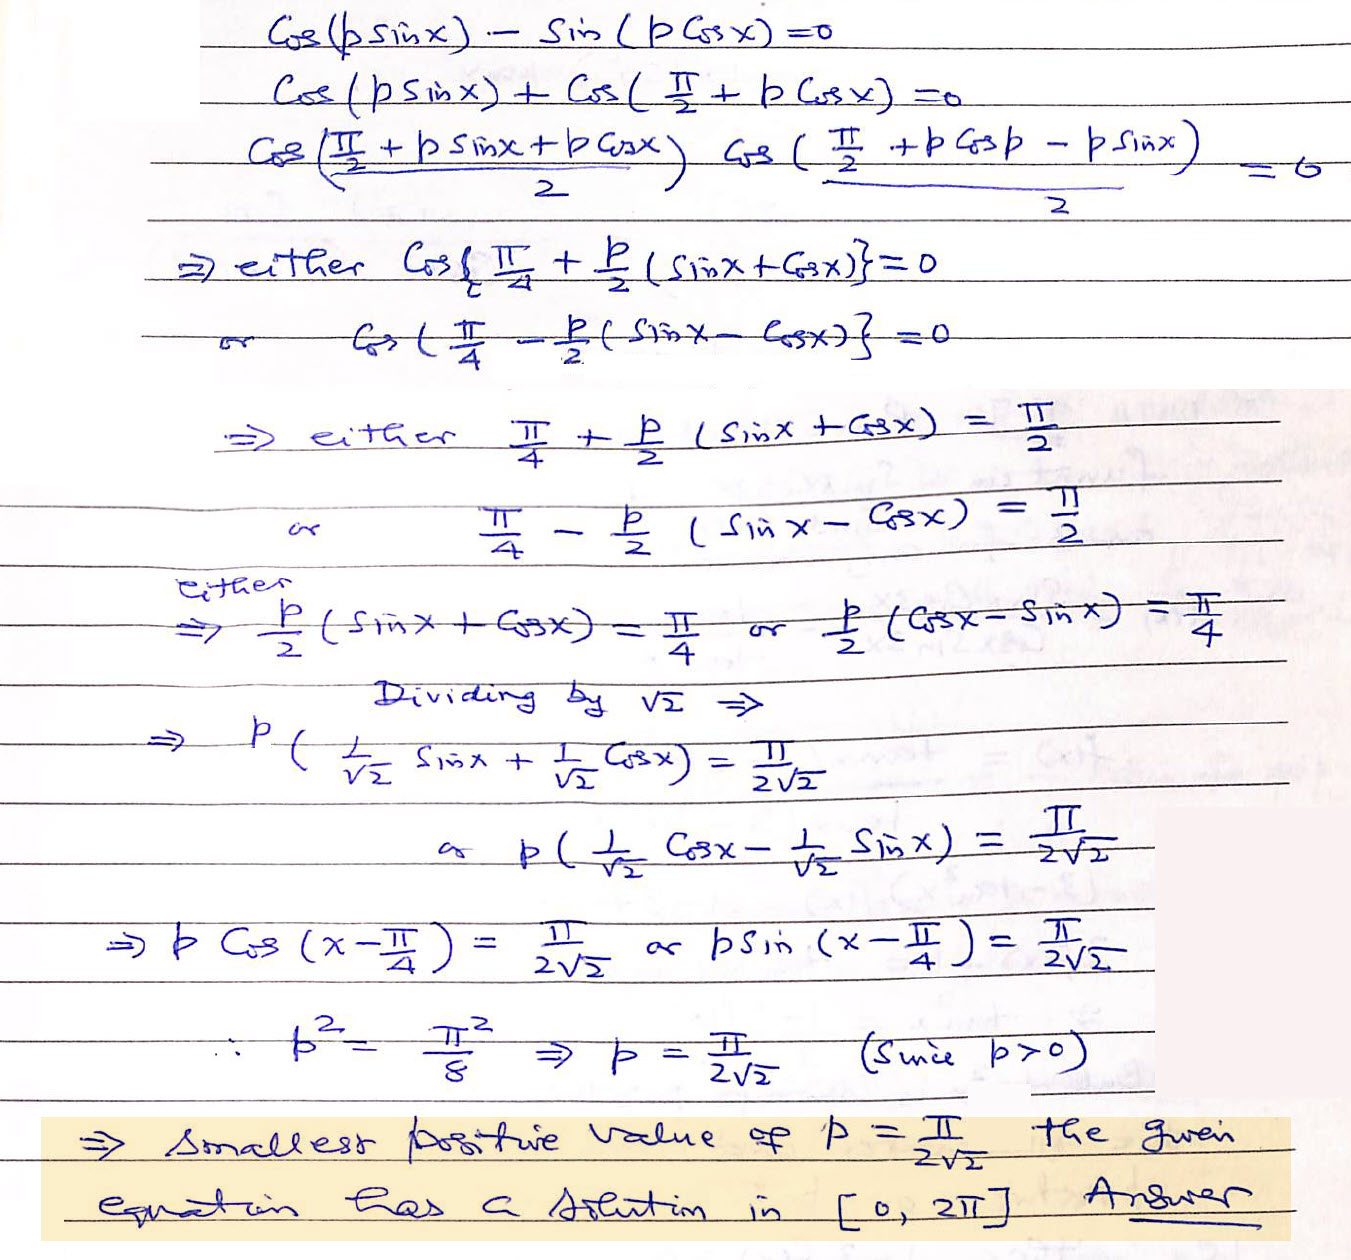 Cos(p sinx) - Sin(p Cosx) = 0
Cos(p Sinx) + Cos(π/2 + p Cosx) = 0
Cos((π/2 + p Sinx + p Cosx)/2) Cos((π/2 + p Cosp - p Sinx)/2) = 0
⇒ either Cos{π/4 + p/2 (Sinx + Cosx)} = 0
or Cos(π/4 - p/2 (Sinx - Cosx)} = 0
⇒ either π/4 + p/2 (Sinx + Cosx) = π/2
or π/4 - p/2 (Sinx - Cosx) = π/2
either
⇒ p/2 (Sinx + Cosx) = π/4 or p/2 (Cosx - Sinx) = π/4
Dividing by √2 ⇒
⇒ p(1/√2 Sinx + 1/√2 Cosx) = π/2√2
or p(1/√2 Cosx - 1/√2 Sinx) = π/2√2
⇒ p Cos(x - π/4) = π/2√2 or p Sin(x - π/4) = π/2√2
∴ p² = π²/8 ⇒ p = π/2√2 (Since p>0)
⇒ Smallest positive value of p = π/2√2 the given
equation has a solution in [0, 2π] Answer